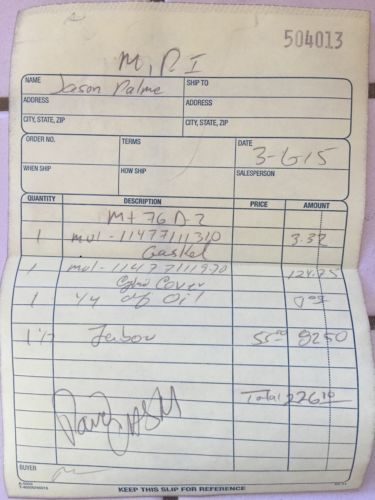 504013
M, R I
NAME Jason Palme SHIP TO
ADDRESS ADDRESS
CITY, STATE, ZIP CITY, STATE, ZIP
ORDER NO. TERMS DATE 3-6-15
WHEN SHIP HOW SHIP SALESPERSON
QUANTITY DESCRIPTION PRICE AMOUNT
1 mol-11477111310 3.32
Gasket
1 mol-11477711970 124.75
Cover
1 1/4 of Oil
1 1/2 55.00 8250
Total 22610
BUYER
KEEP THIS SLIP FOR REFERENCE